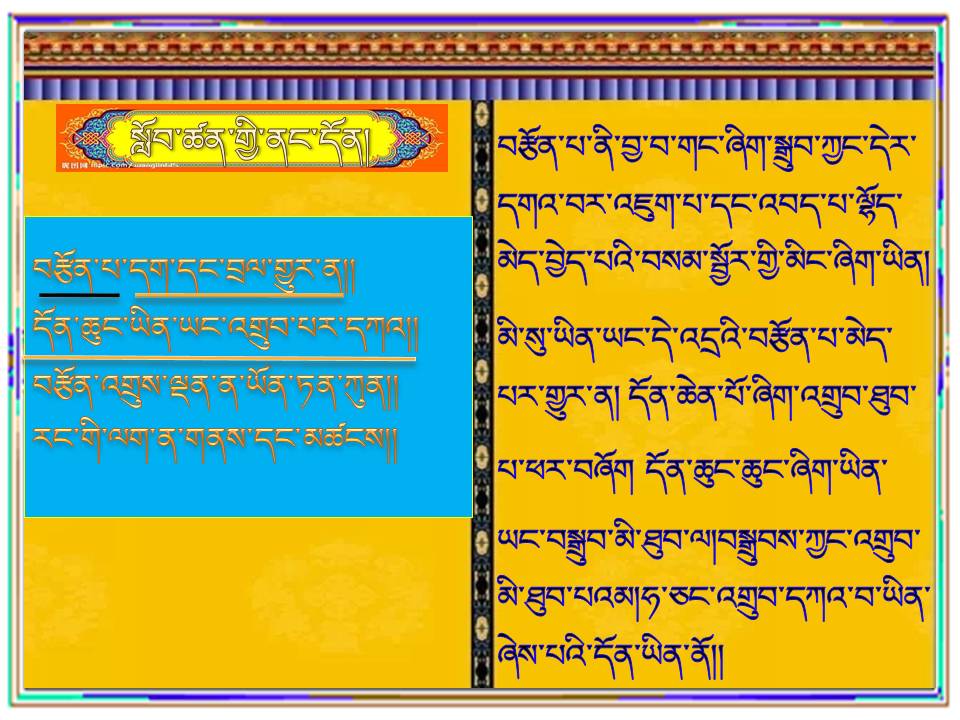 སློབ་ཚན་གྱི་ནང་དོན།
བརྩོན་པ་དག་དང་བྲལ་གྱུར་ན།།
དོན་ཆུང་ཡིན་ཡང་འགྲུབ་པར་དཀའ།།
བརྩོན་འགྲུས་ལྡན་ན་ཡོན་ཏན་ཀུན།།
རང་གི་ལག་ན་གནས་དང་མཚུངས།།
བརྩོན་པ་ནི་བྱ་བ་གང་ཞིག་སྒྲུབ་ཀྱང་དེར་
དགའ་བར་འཇུག་པ་དང་འབད་པ་ལྷོད་
མེད་བྱེད་པའི་བསམ་སྦྱོར་གྱི་མིང་ཞིག་ཡིན།
མི་སུ་ཡིན་ཡང་དེ་འདྲའི་བརྩོན་པ་མེད་
པར་གྱུར་ན། དོན་ཆེན་པོ་ཞིག་འགྲུབ་ཐུབ་
པ་ཕར་བཞོག དོན་ཆུང་ཆུང་ཞིག་ཡིན་
ཡང་བསྒྲུབ་མི་ཐུབ་ལ།བསྒྲུབས་ཀྱང་འགྲུབ་
མི་ཐུབ་པའམ།ཧ་ཅང་འགྲུབ་དཀའ་བ་ཡིན་
ཞེས་པའི་དོན་ཡིན་ནོ།།